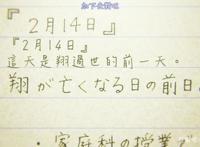 加下炎對吐
『2月14日』
『2月14日』
這天是翔過世的前一天。
翔が亡くなる日の前日
・家庭科の授業で